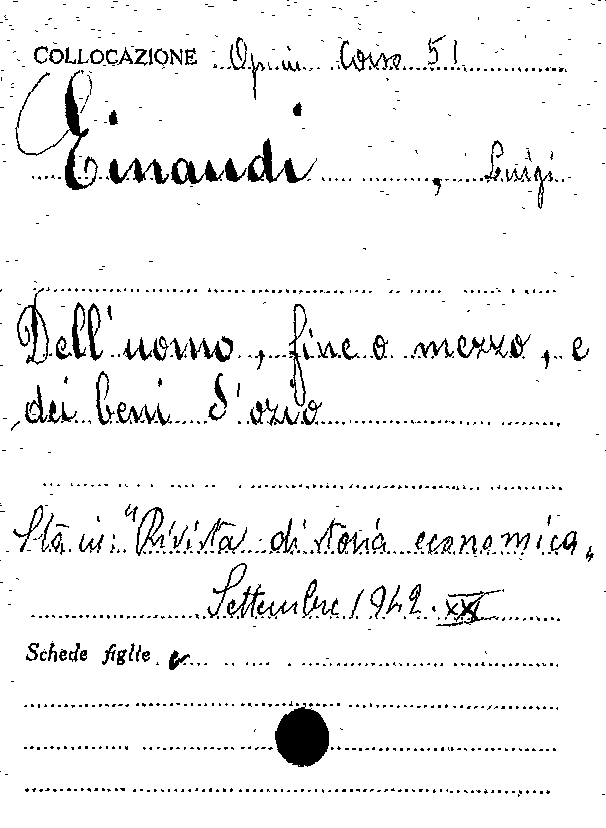 COLLOCAZIONE Op. in Corso 51
Einaudi, Luigi
Dell'uomo, fine o mezzo, e
dei beni d'ozio
Sta in: "Rivista di storia economica"
Settembre 1942. XX
Schede figlie